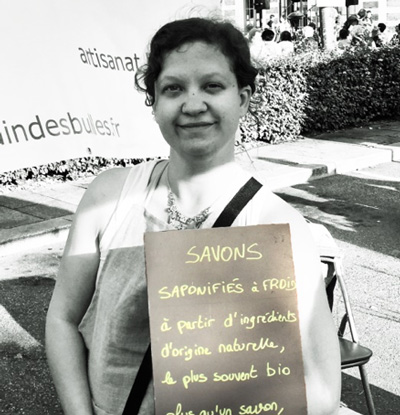 artisanat
indesbulles.fr
SAVONS
SAPONIFIÉS à FROID
à partir d'ingrédients
d'origine naturelle,
le plus souvent bio
plus qu'un savon,